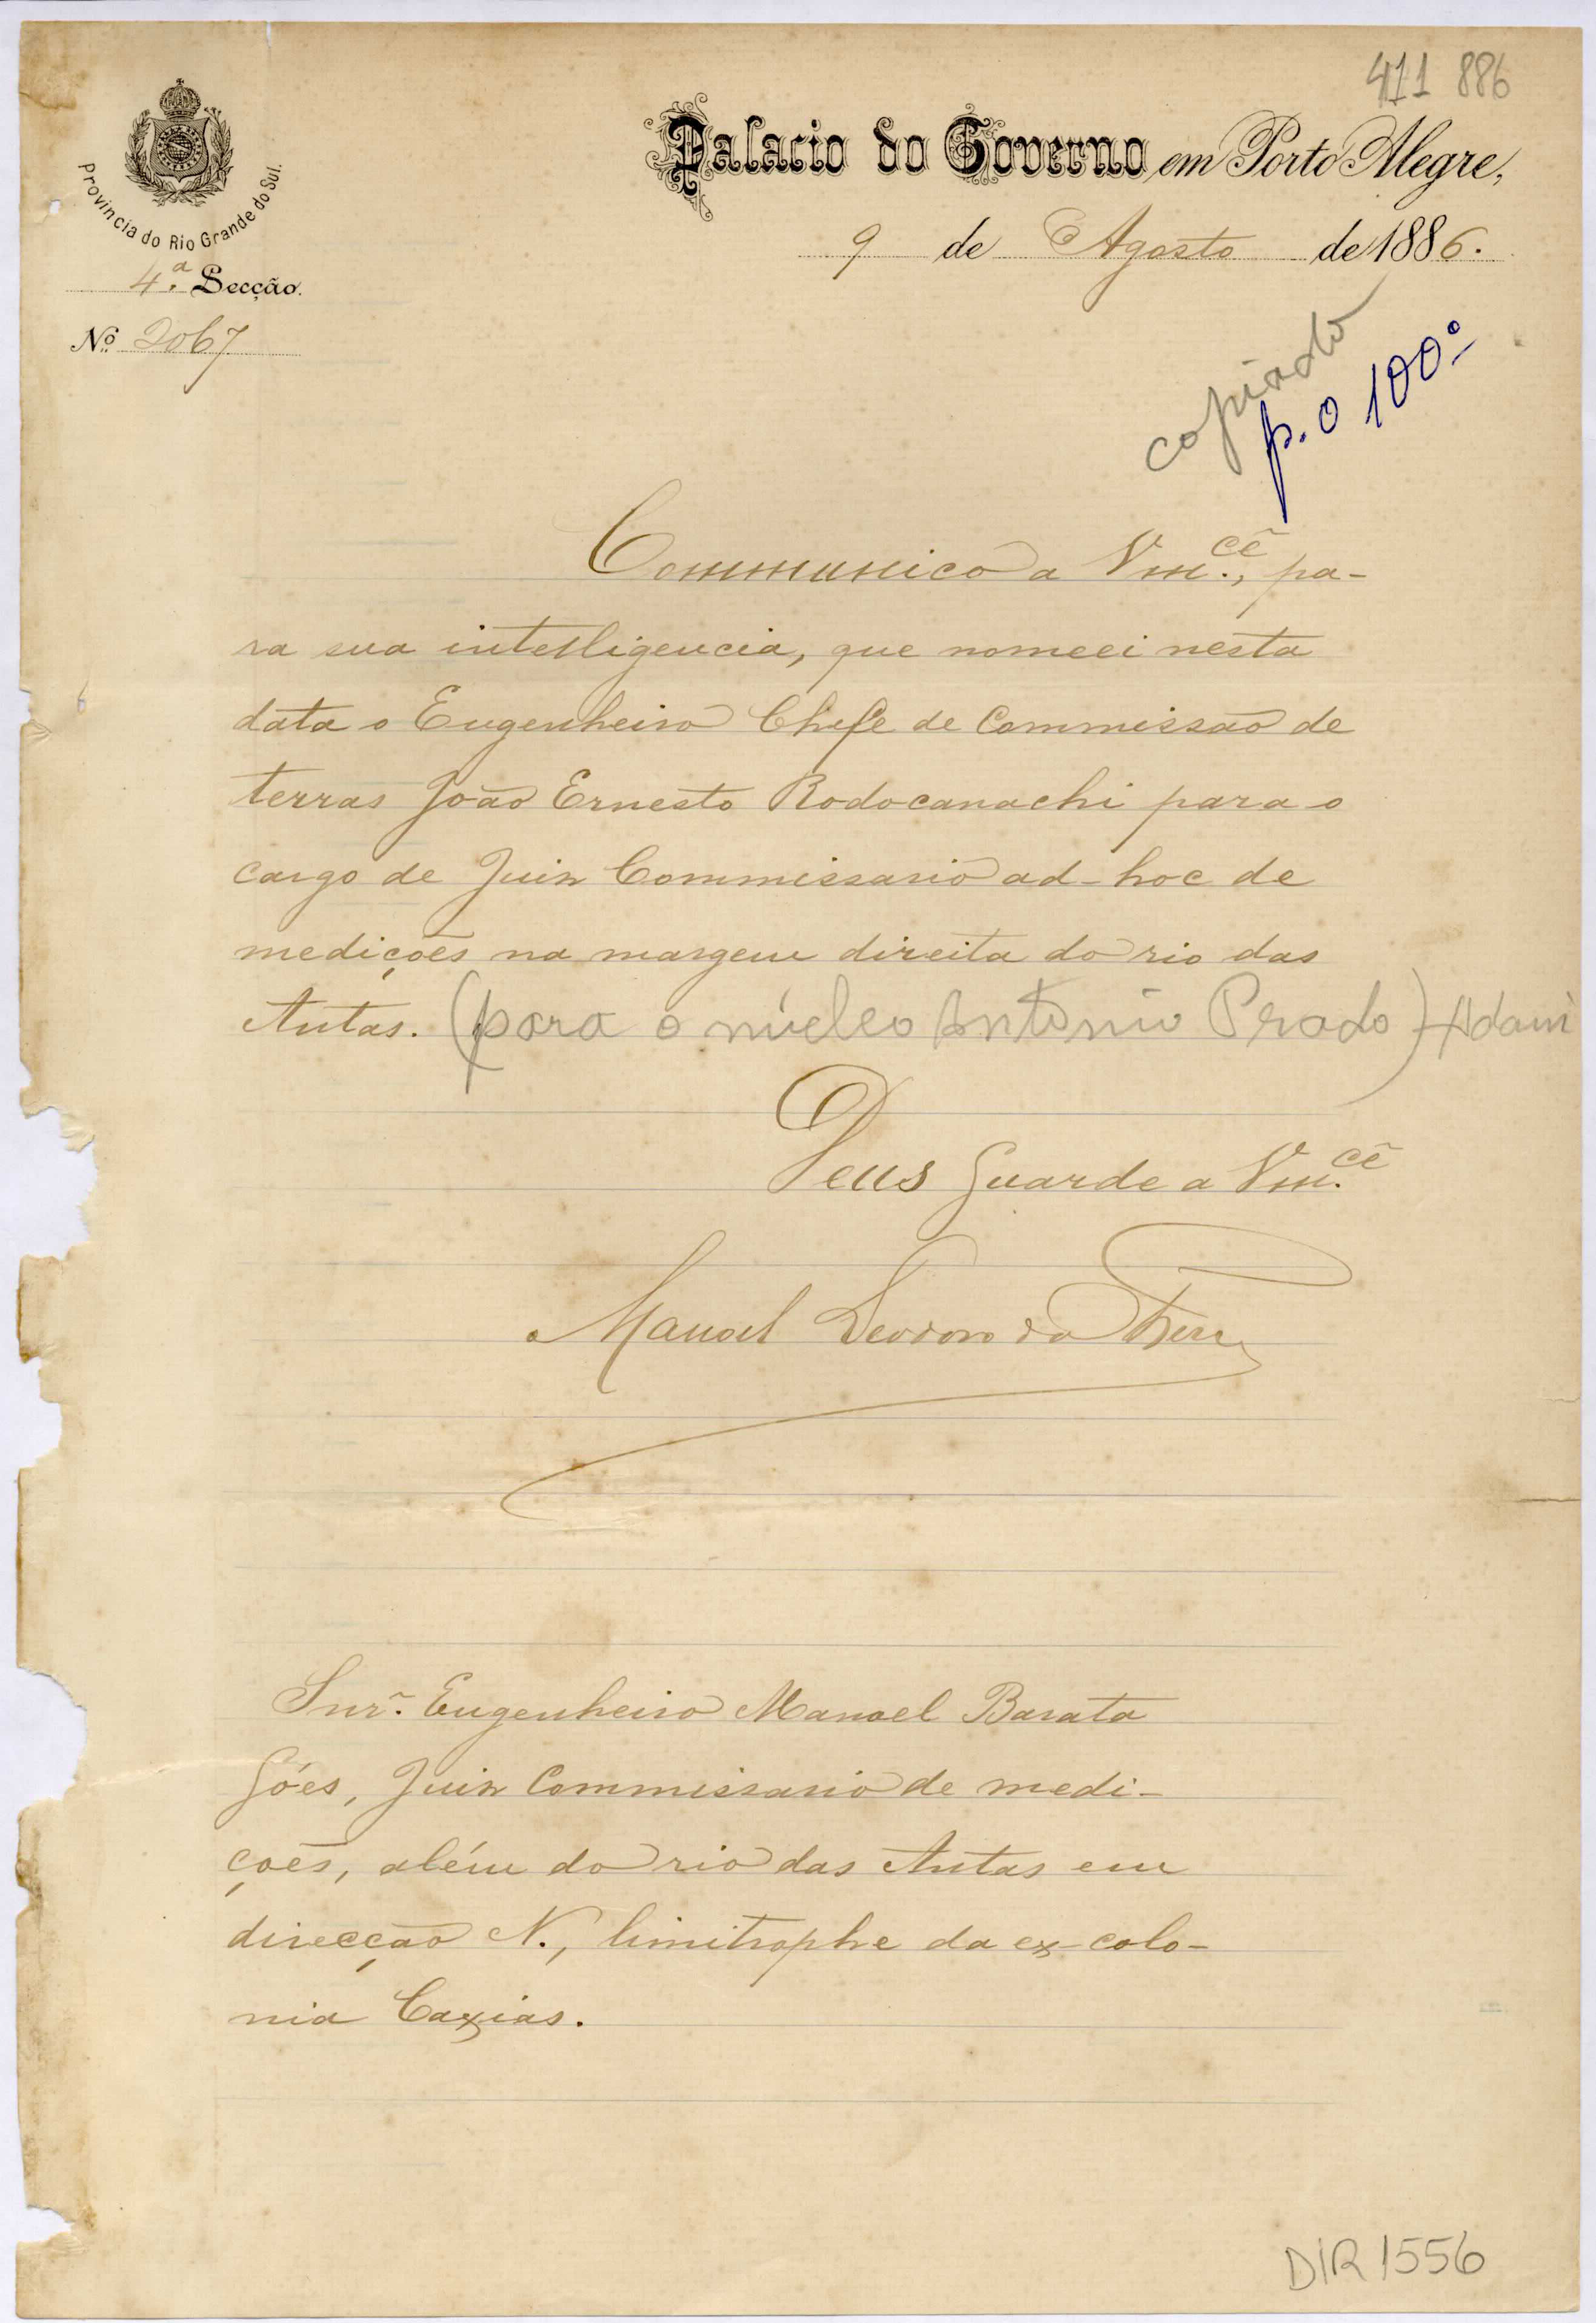 411 886
Palacio do Governo em Porto Alegre,
Provincia do Rio Grande do Sul.
9 de Agosto de 1886.
4.ª Secção.
Nº 2067
copiado
p. o 100º
Communico a Vm.cê, pa-
ra sua intelligencia, que nomeei nesta
data o Engenheiro Chefe de Commissão de
terras João Ernesto Rodocanachi para o
cargo de Juiz Commissario ad-hoc de
medições na margem direita do rio das
Antas. (para o núcleo Antonio Prado) Adami
Deus Guarde a Vm.cê
Manoel Deodoro da
Snr. Engenheiro Manoel Barata
Góes, Juiz Commissario de medi-
ções, além do rio das Antas em
direcção N., limitrophe da ex-colo-
nia Caxias.
DIR 1556